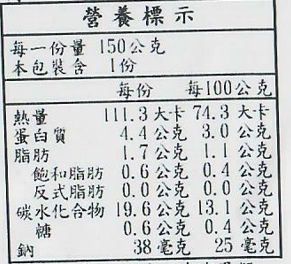 營養標示
每一份量 150公克
本包裝含 1份
每份 每100公克
熱量 111.3 大卡 74.3 大卡
蛋白質 4.4 公克 3.0 公克
脂肪 1.7 公克 1.1 公克
飽和脂肪 0.6 公克 0.4 公克
反式脂肪 0.0 公克 0.0 公克
碳水化合物 19.6 公克 13.1 公克
糖 0.6 公克 0.4 公克
鈉 38 毫克 25 毫克